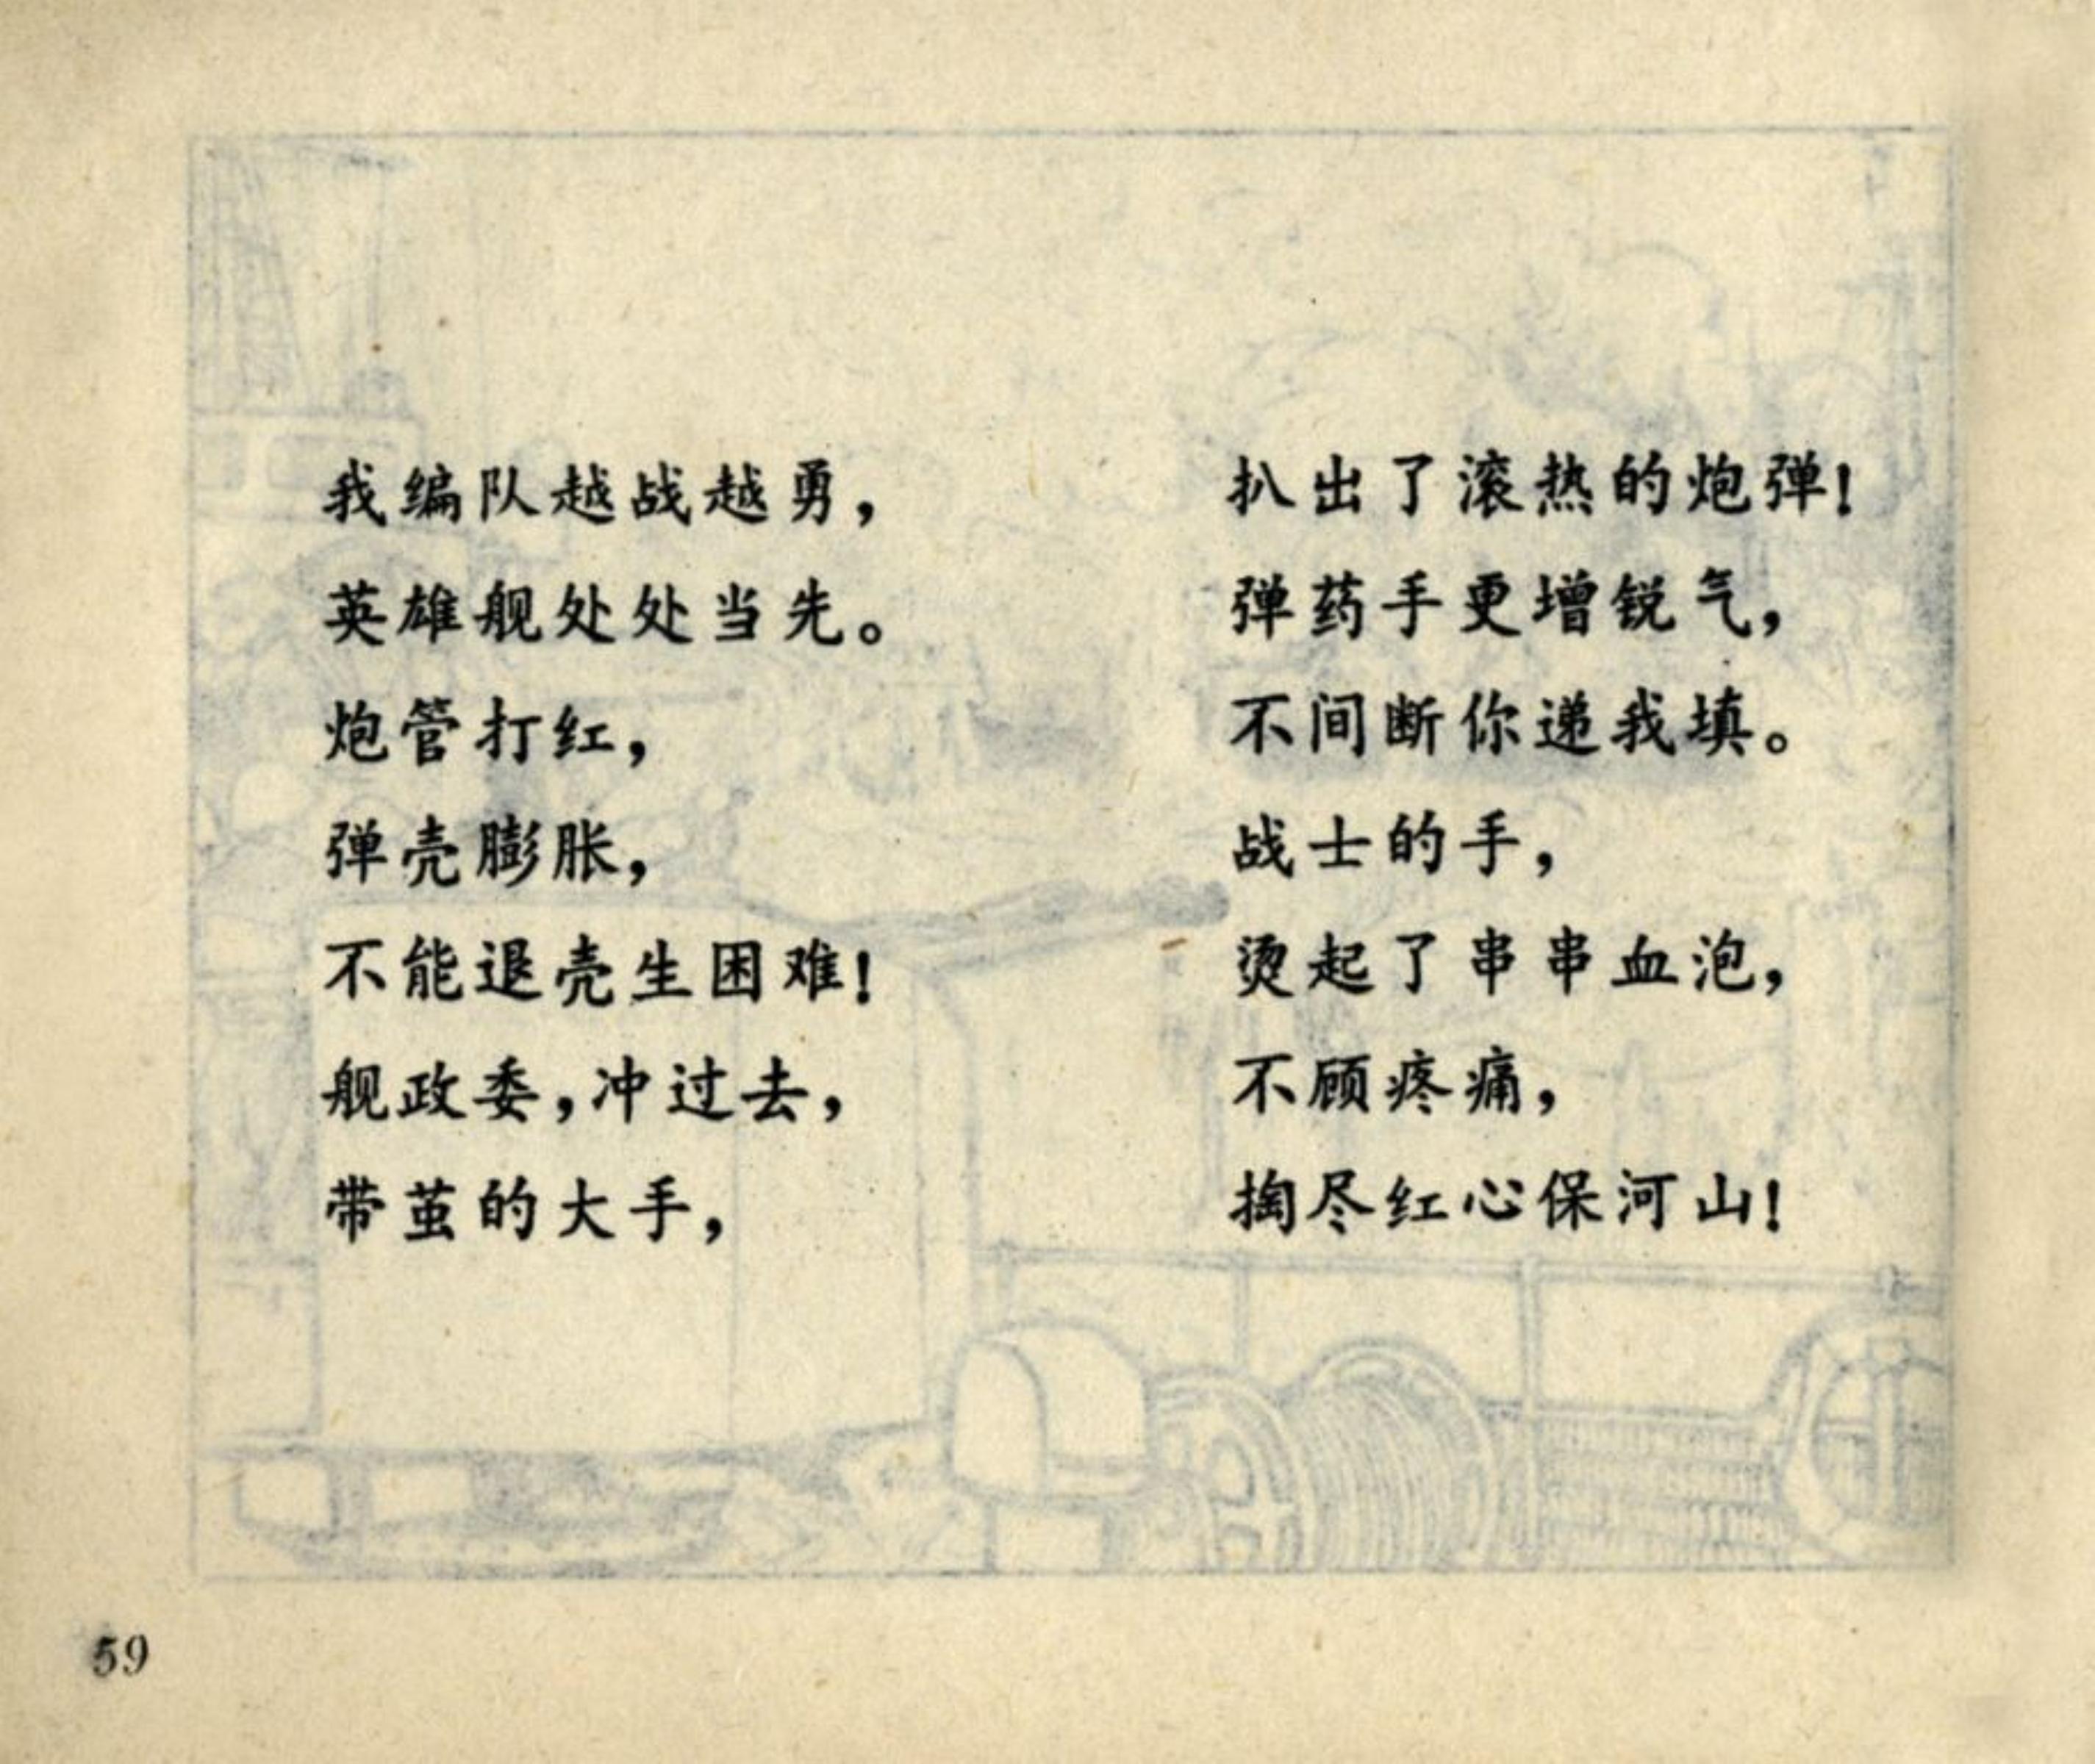 我编队越战越勇，
英雄舰处处当先。
炮管打红，
弹壳膨胀，
不能退壳生困难！
舰政委，冲过去，
带茧的大手，
扒出了滚热的炮弹！
弹药手更增锐气，
不间断你递我填。
战士的手，
烫起了串串血泡，
不顾疼痛，
掏尽红心保河山！
59